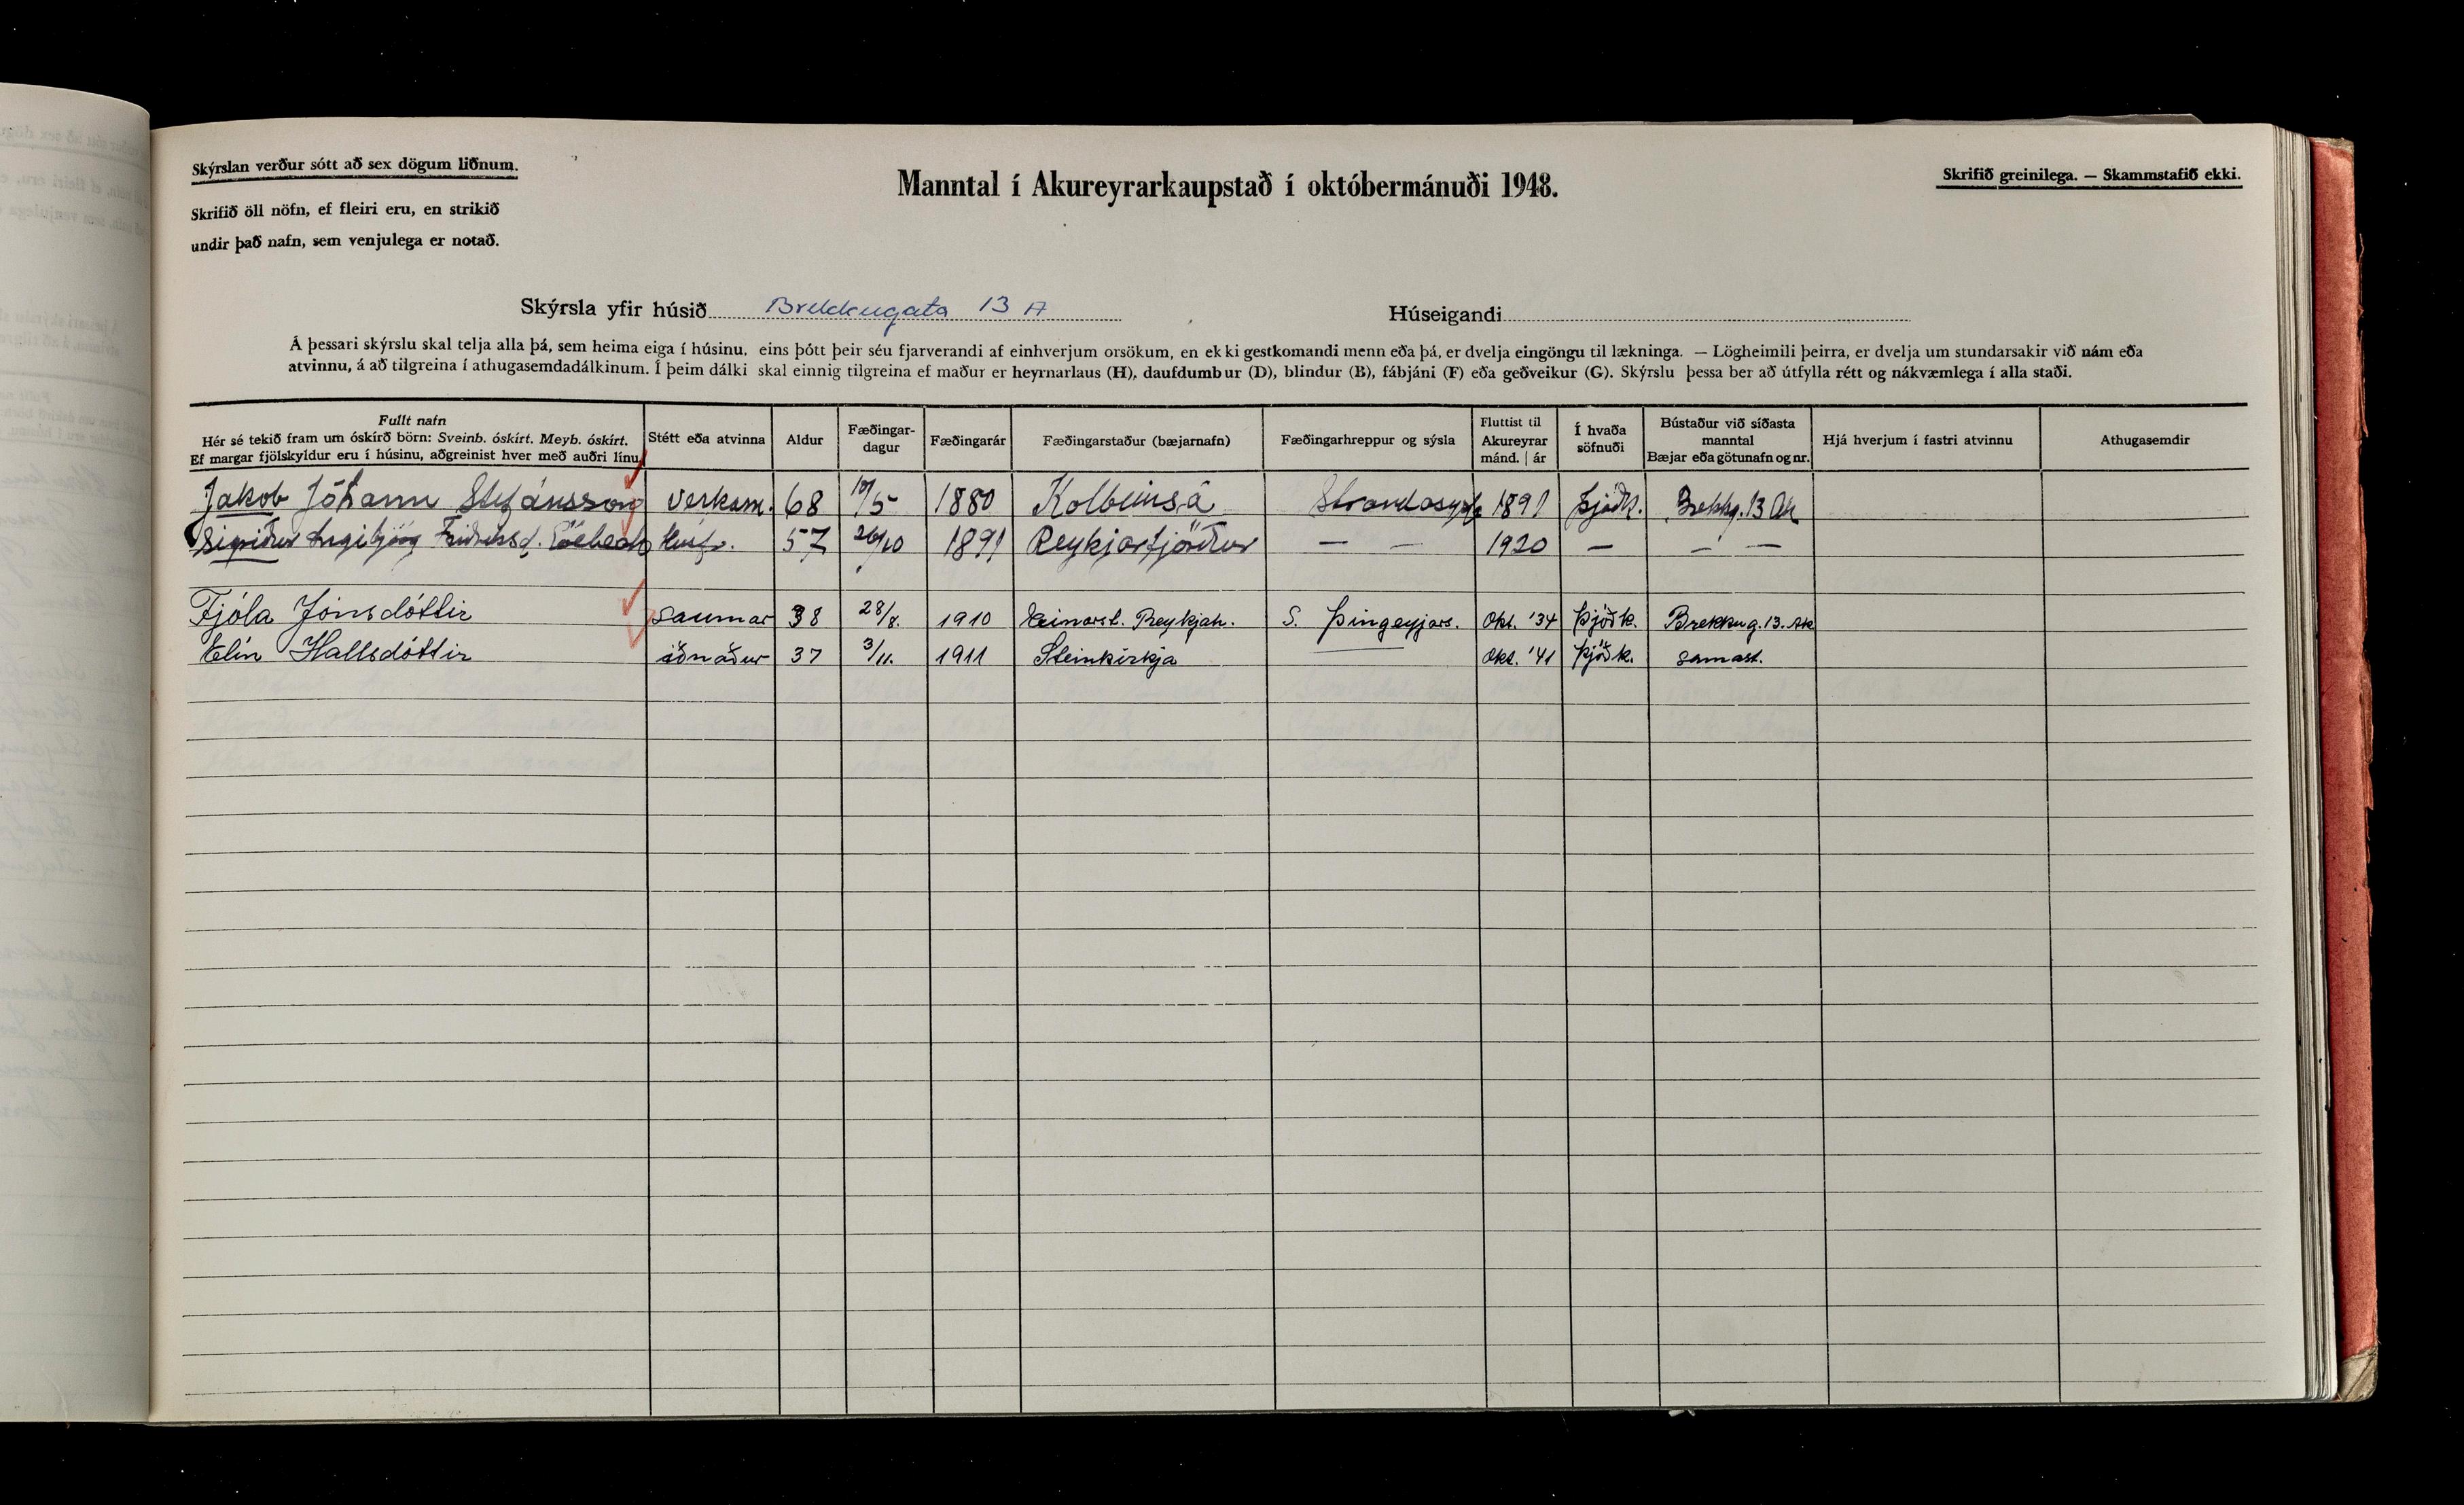 Skýrslan verður sótt að sex dögum liðnum.
Skrifið öll nöfn, ef fleiri eru, en strikið
undir það nafn, sem venjulega er notað.
Manntal í Akureyrarkaupstað í októbermánuði 1948.
Skrifið greinilega. — Skammstafið ekki.
Skýrsla yfir húsið Brekkugata 13 A
Húseigandi
Á þessari skýrslu skal telja alla þá, sem heima eiga í húsinu, eins þótt þeir séu fjarverandi af einhverjum orsökum, en ekki gestkomandi menn eða þá, er dvelja eingöngu til lækninga. — Lögheimili þeirra, er dvelja um stundarsakir við nám eða
atvinnu, á að tilgreina í athugasemdadálkinum. Í þeim dálki skal einnig tilgreina ef maður er heyrnarlaus (H), daufdumbur (D), blindur (B), fábjáni (F) eða geðveikur (G). Skýrslu þessa ber að útfylla rétt og nákvæmlega í alla staði.
Fullt nafn
Hér sé tekið fram um óskírð börn: Sveinb. óskírt. Meyb. óskírt.
Ef margar fjölskyldur eru í húsinu, aðgreinist hver með auðri línu.
Stétt eða atvinna
Aldur
Fæðingar-
dagur
Fæðingarár
Fæðingarstaður (bæjarnafn)
Fæðingarhreppur og sýsla
Fluttist til
Akureyrar
mánd. | ár
Í hvaða
söfnuði
Bústaður við síðasta
manntal
Bæjar eða götunafn og nr.
Hjá hverjum í fastri atvinnu
Athugasemdir
Jakob Jóhann Stefánsson verkam. 68 10/5 1880 Kolbeinsá Strandasýsla 1891 Þjóðk. Brekkg. 13 Ak
Sigríður Ingibjörg Friðriksd. húsfr. 57 26/10 1891 Reykjarfjörður — — 1920 — — —
Fjóla Jónsdóttir saumar 38 28/8. 1910 Einarsst. Reykjah. S. Þingeyjars. Okt. '34 Þjóðk. Brekkug. 13. Ak
Elín Hallsdóttir iðnaður 37 3/11. 1911 Steinkirkja Okt. '41 Þjóðk. samast.